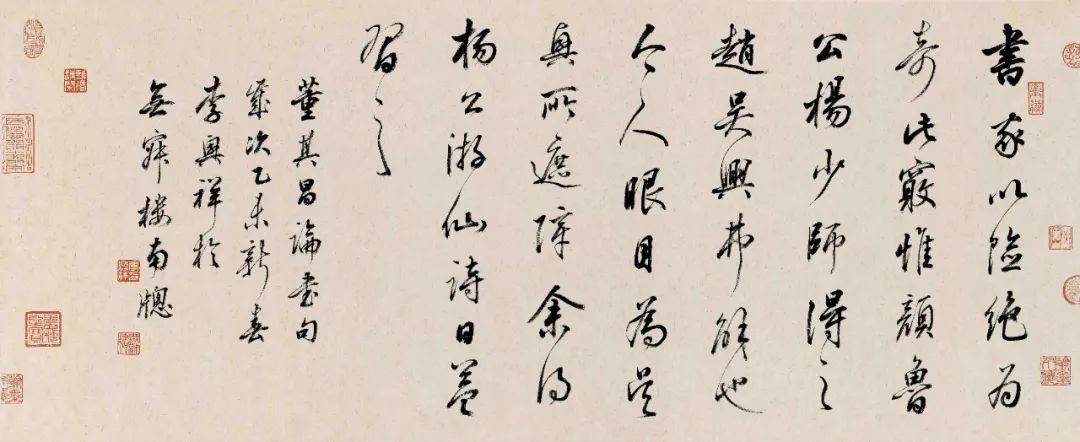 書家以險絕為
奇此竅惟顏魯
公楊少師得之
趙吳興弗解也
今人眼目為吳
興所遮障余得
楊公游仙詩日益
習之
董其昌論書句
歲次乙未新春
李興祥於
無寐樓南牕